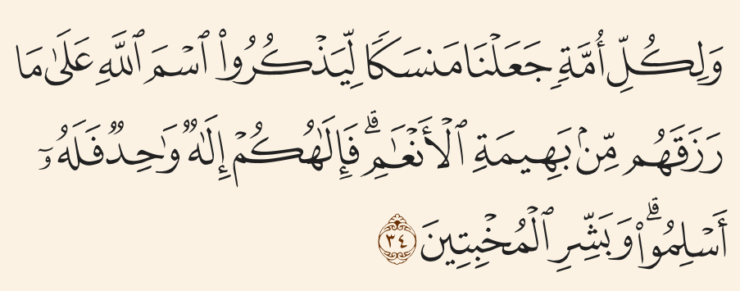 وَلِكُلِّ أُمَّةٍ جَعَلْنَا مَنسَكًا لِّيَذْكُرُوا۟ ٱسْمَ ٱللَّهِ عَلَىٰ مَا
رَزَقَهُم مِّنۢ بَهِيمَةِ ٱلْأَنْعَـٰمِ ۗ فَإِلَـٰهُكُمْ إِلَـٰهٌ وَٰحِدٌ فَلَهُۥٓ
أَسْلِمُوا۟ ۗ وَبَشِّرِ ٱلْمُخْبِتِينَ ٣٤